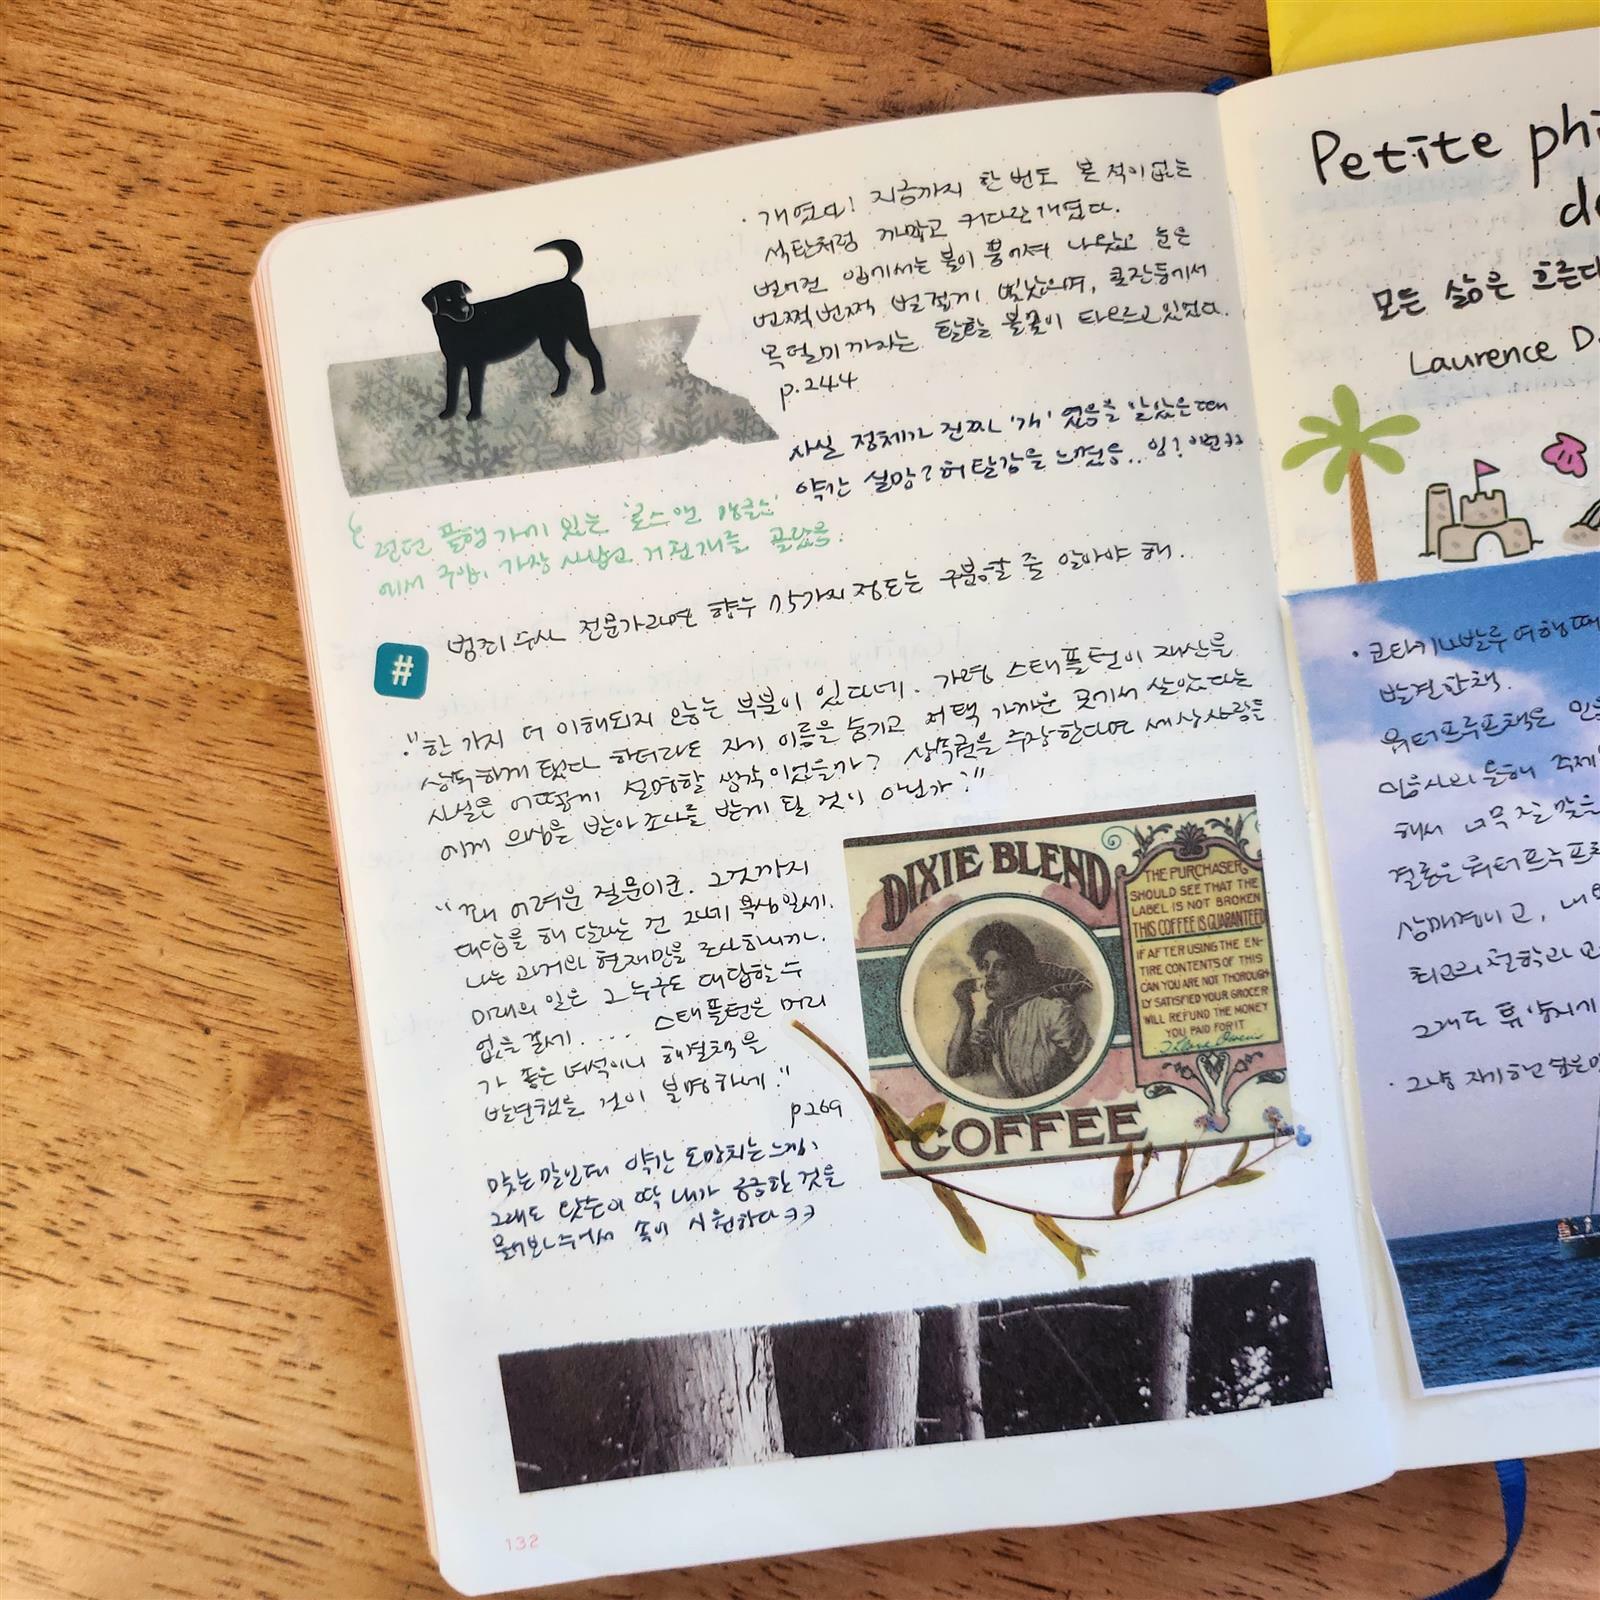 · 개였다! 지금까지 한 번도 본 적이 없는
석탄처럼 까맣고 커다란 개였다.
벌어진 입에서는 불이 뿜어져 나왔고 눈은
번쩍번쩍 빛났으며, 콧잔등에서
목덜미까지는 활활 불꽃이 타오르고 있었다.
p.244
사실 정체가 진짜 '개' 였음을 알았을때
약간 실망?허탈감을 느꼈음.. 잉! 이런ㅋㅋ
런던 플햄가에 있는 '로스앤 맹글스'
에서 구입. 가장 사납고 거친개를 골랐음.
범죄 수사 전문가라면 향수 75가지 정도는 구분할 줄 알아야 해.
#
· "한 가지 더 이해되지 않는 부분이 있다네. 가령 스태플턴이 재산을
상속하게 됐다 하더라도 자기 이름을 숨기고 저택 가까운 곳에서 살았다는
사실은 어떻게 설명할 생각이었을까? 상속권을 주장한다면 세상사람들
에게 의심을 받아 조사를 받게 될 것이 아닌가?"
"꽤 어려운 질문이군. 그것까지
대답을 해 달라는 건 자네 욕심일세.
나는 과거와 현재만을 조사하니까.
미래의 일은 그 누구도 대답할 수
없을 걸세. ... 스태플턴은 머리
가 좋은 녀석이니 해결책을
발견했을 것이 분명하네."
p269
맞는 말인데 약간 도망치는 느낌;
그래도 왓슨이 딱 내가 궁금한 것을
물어봐주어서 속이 시원하다ㅋㅋ
DIXIE BLEND
COFFEE
THE PURCHASER
SHOULD SEE THAT THE
LABEL IS NOT BROKEN
THIS COFFEE IS GUARANTEED
IF AFTER USING THE EN-
TIRE CONTENTS OF THIS
CAN YOU ARE NOT THOROUGH-
LY SATISFIED YOUR GROCER
WILL REFUND THE MONEY
YOU PAID FOR IT
132
Petite phi
de
모든 삶은 흐른다
Laurence D.
· 코타키나발루 여행때
발견한책.
워터프루프책은 민음
민음사와 통해 주제
해서 너무 잘 맞은
결론은 워터프루프
최고의 철학과
그래도 휴양지에
· 그냥 자기하고 싶은